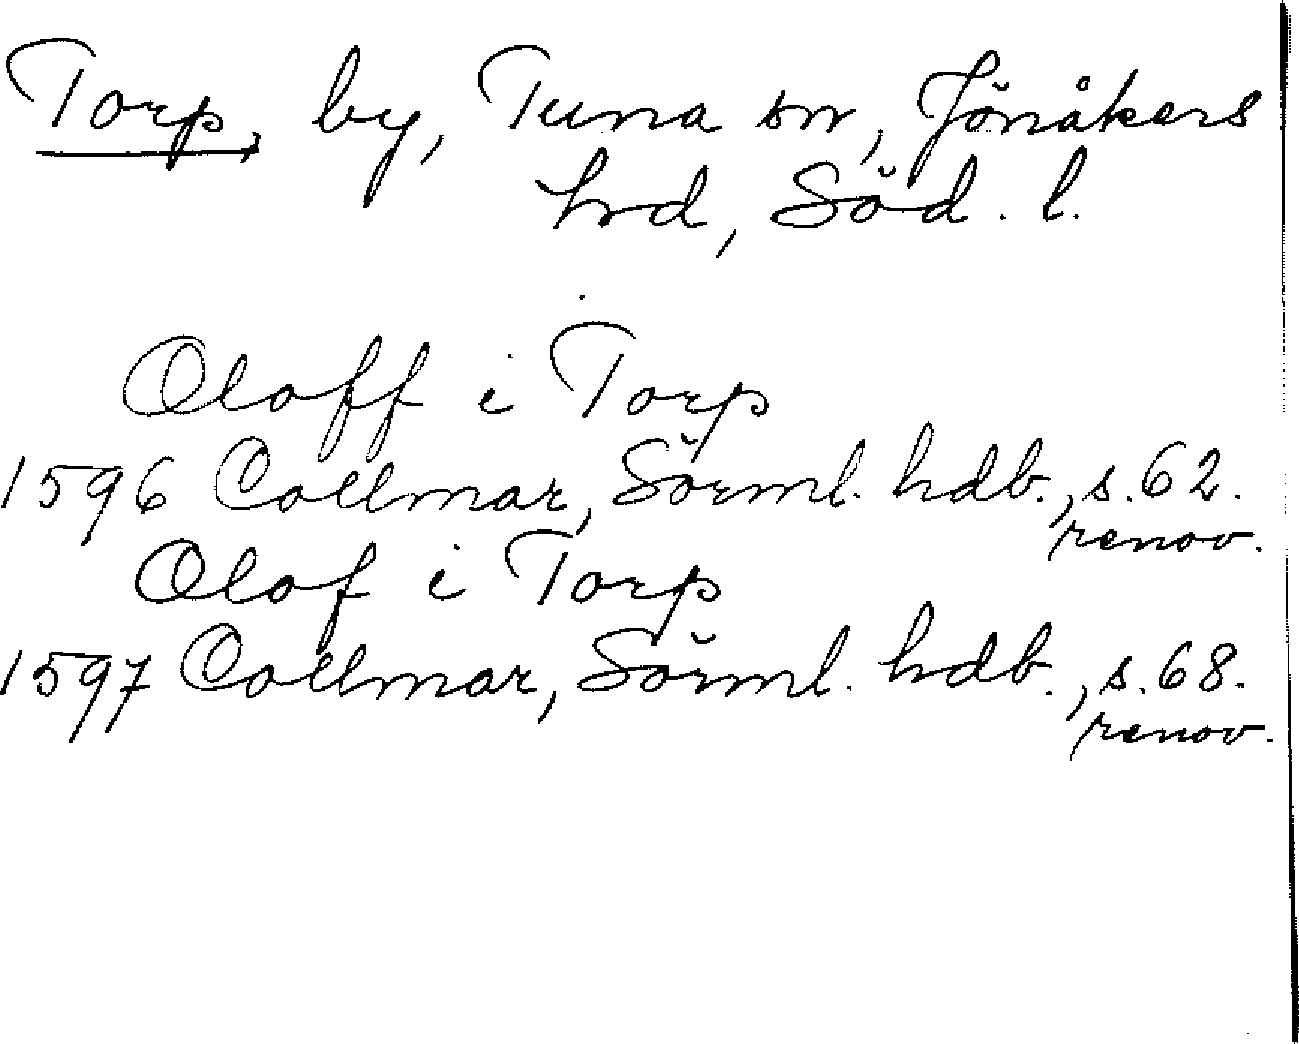 Torp, by, Tuna sn, Jönåkers
hrd, Söd. l.
Oloff i Torp
1596 Collmar, Sörml. hdb., s. 62.
renov.
Olof i Torp
1597 Collmar, Sörml. hdb., s. 68.
renov.